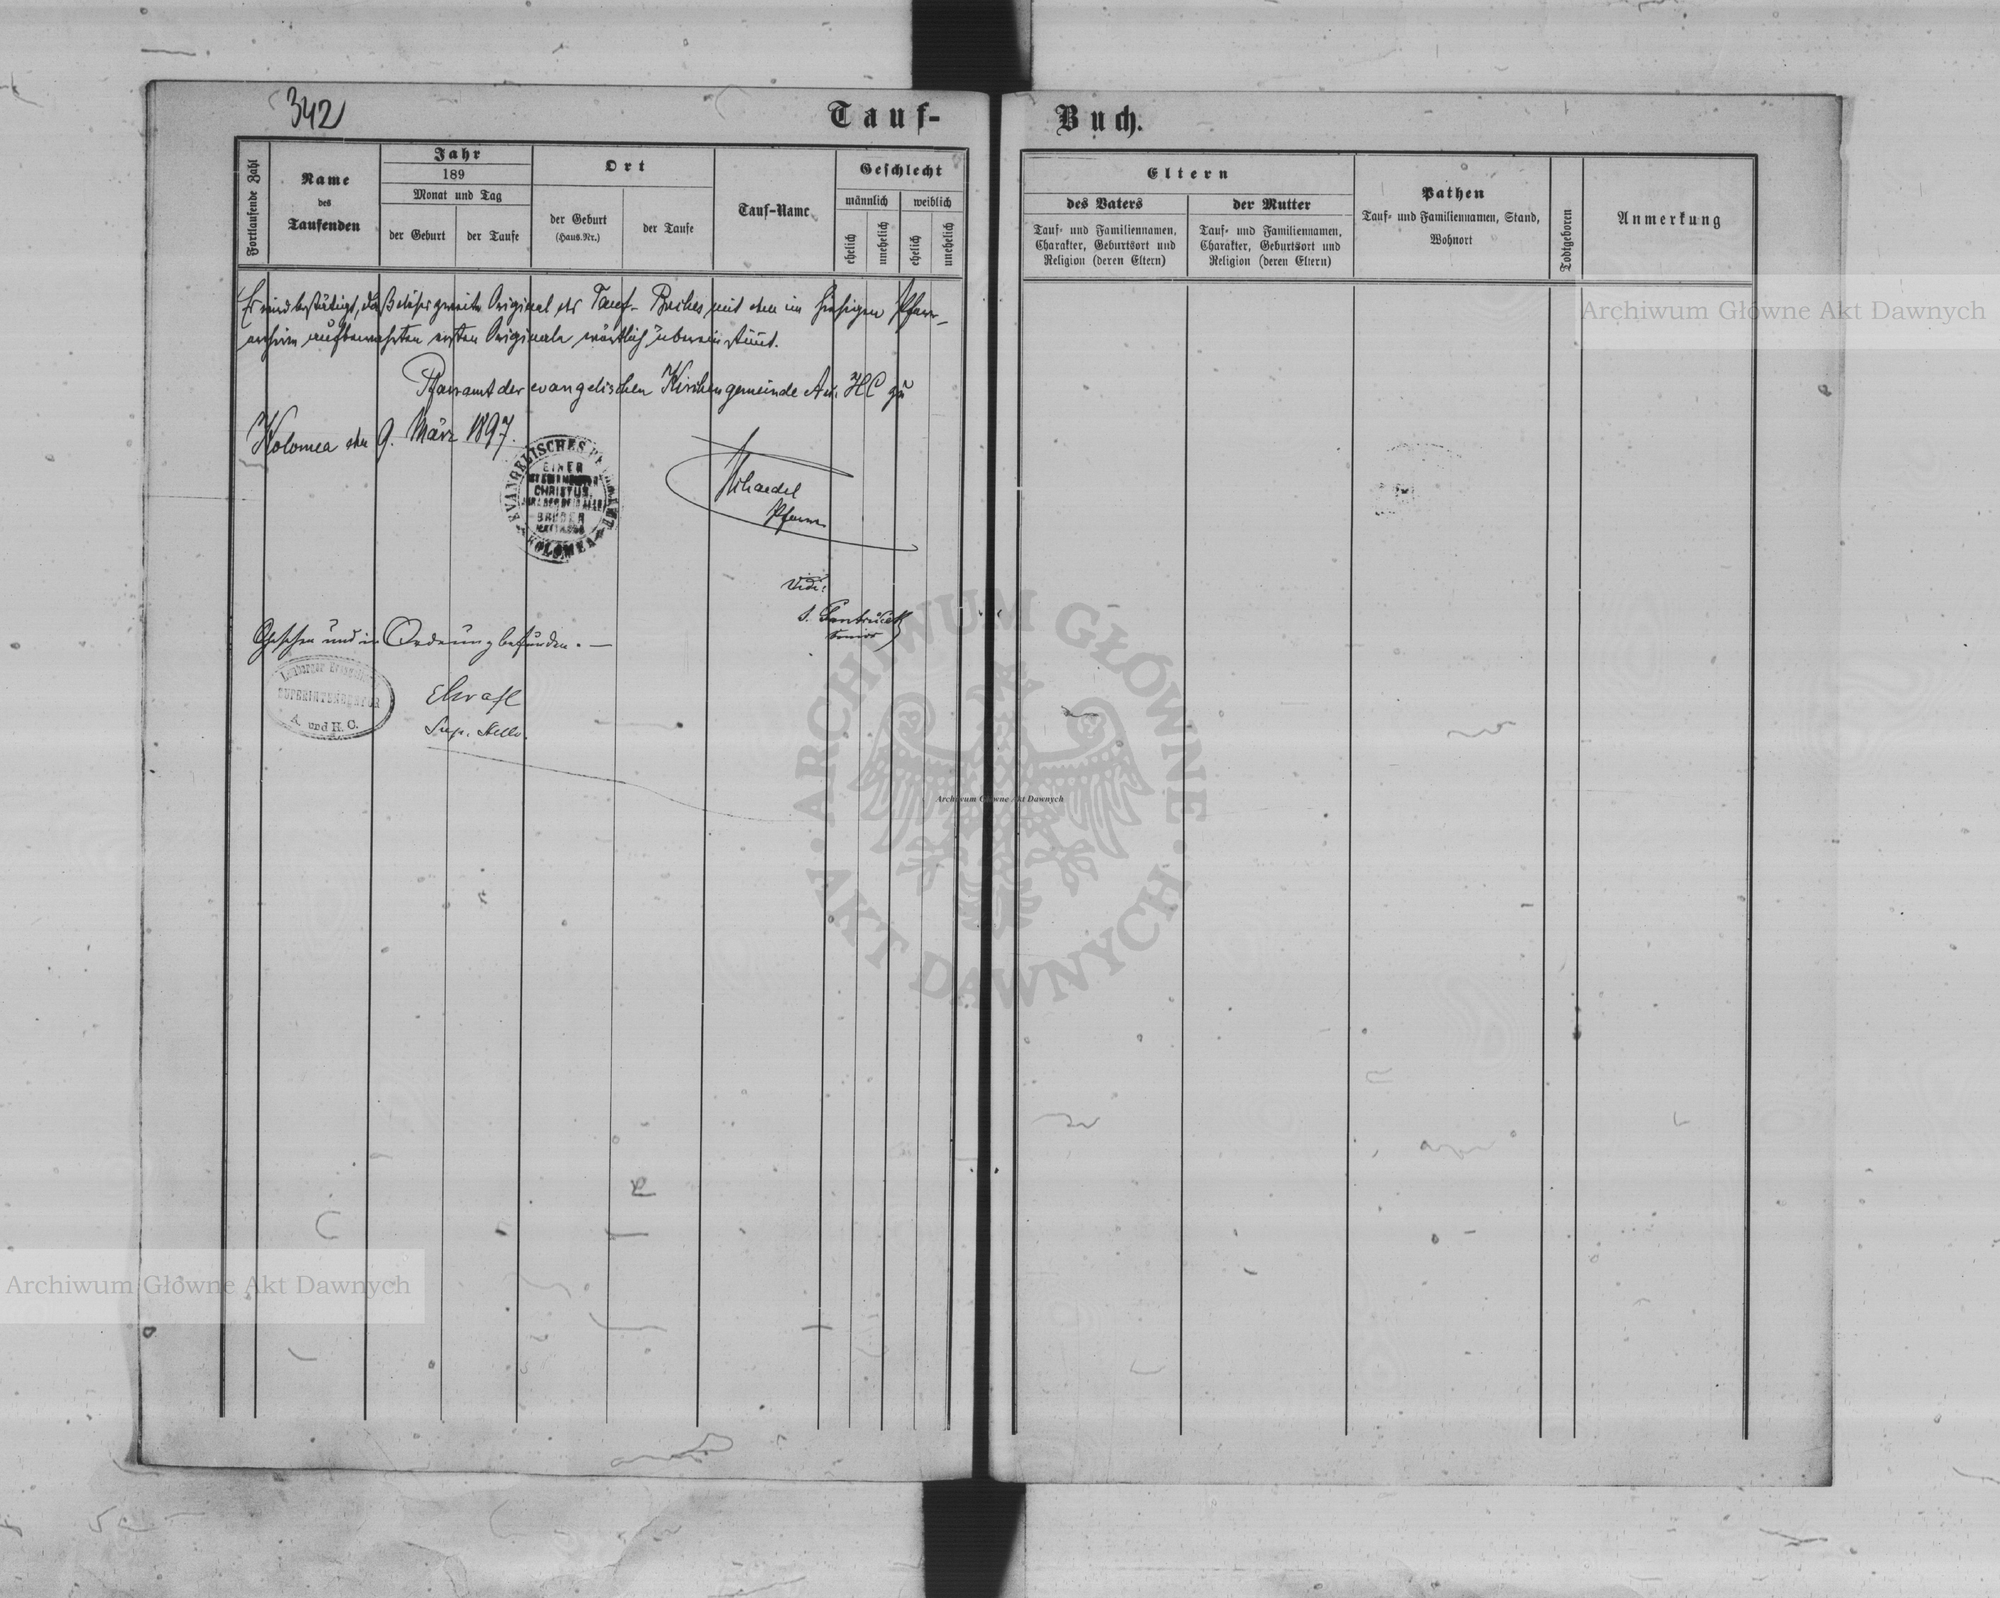 342
Tauf-Buch.
Fortlaufende Zahl
Name
des
Taufenden
Jahr
189
Monat und Tag
der Geburt
der Taufe
Ort
der Geburt
(Haus-Nr.)
der Taufe
Tauf-Name
Geschlecht
männlich
weiblich
ehelich
unehelich
ehelich
unehelich
Eltern
des Vaters
Tauf- und Familiennamen,
Charakter, Geburtsort und
Religion (deren Eltern)
der Mutter
Tauf- und Familiennamen,
Charakter, Geburtsort und
Religion (deren Eltern)
Pathen
Tauf- und Familiennamen, Stand,
Wohnort
Todtgeboren
Anmerkung
Es wird bestätigt, daß dieses zweite Original des Tauf-Buches mit dem im hiesigen Pfarr-
archive aufbewahrten ersten Originale wörtlich übereinstimmt.
Pfarramt der evangelischen Kirchengemeinde A.u. HC zu
Kolomea den 9. März 1897.
EVANGELISCHES PFARRAMT
EINER
CHRISTUS
BRÜDER
KOLOMEA
Pfarrer
Vidi:
Senior
Gesehen und in Ordnung befunden. —
Lemberger Evangel.
SUPERINTENDENTUR
A. und H. C.
Sup. Stellv.
Archiwum Główne Akt Dawnych
ARCHIWUM GŁÓWNE · AKT DAWNYCH ·
Archiwum Główne Akt Dawnych
Archiwum Główne Akt Dawnych